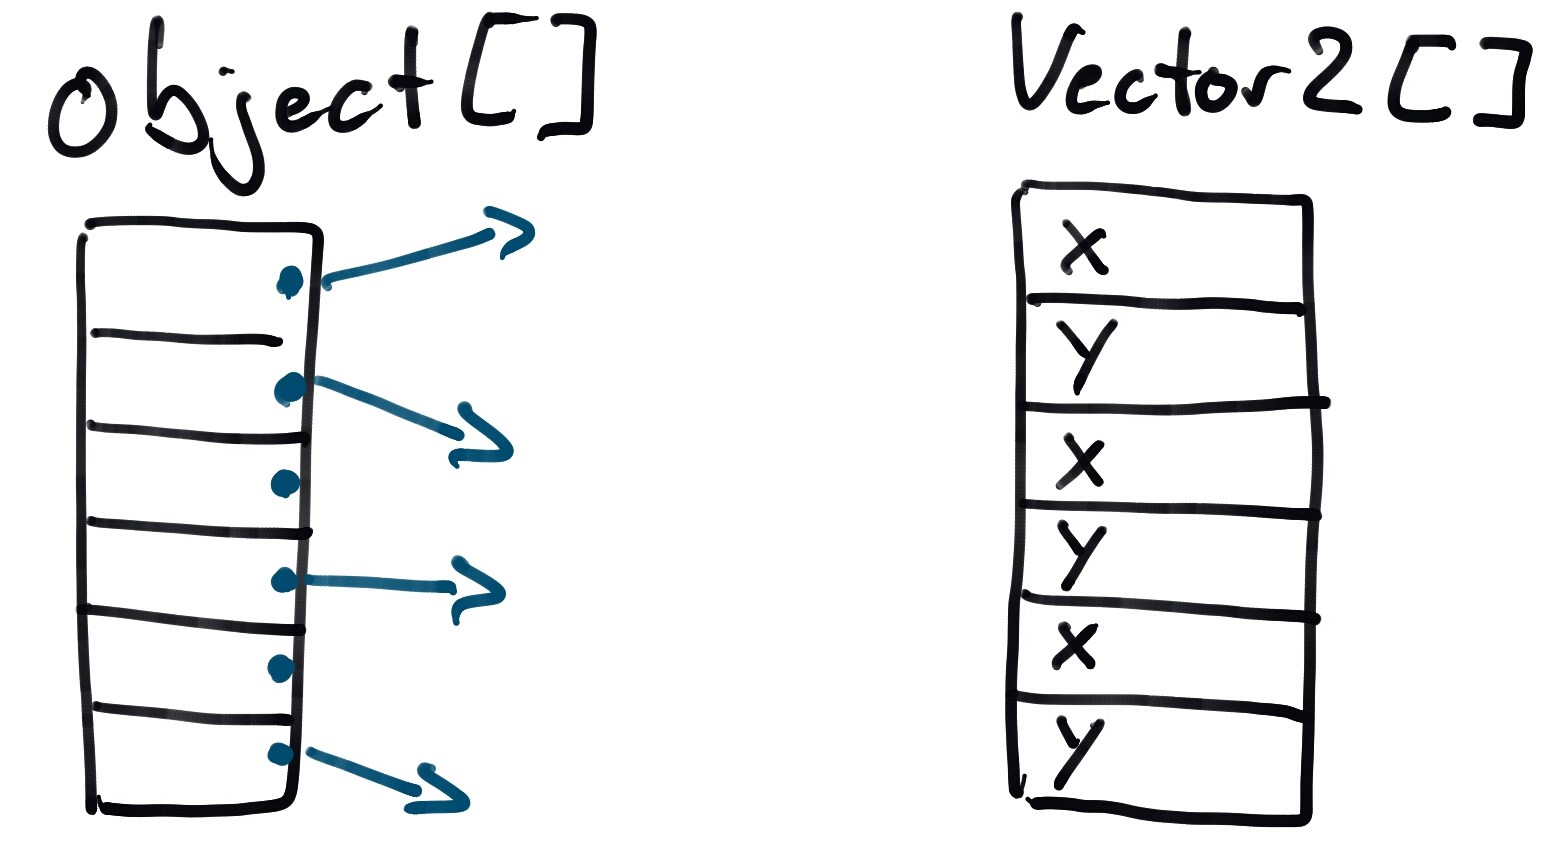 object[]
Vector2[]
x
y
x
y
x
y